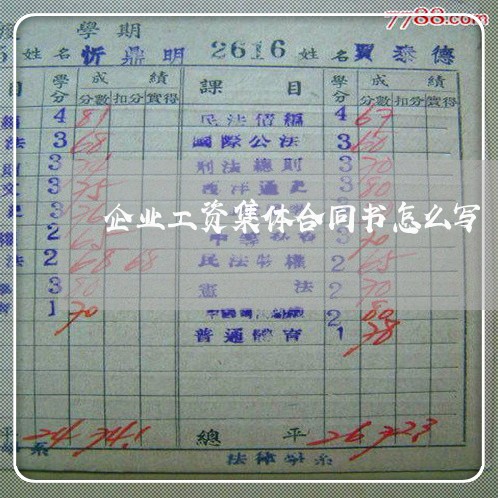 7788.com
學期
姓名 忻鼎明 2616 姓名 賈泰德
目 學分 成績 課目 學分 成績
分數 扣分 實得 分數 扣分 實得
4 81 民法債編 4 67
法 3 68 國際公法 3 60
3 刑法總則 3 70
3 75 西洋通史 3 80
企业工资集体合同书怎么写
2 3 70
法 2 68 68 民法物權 2 65
3 80 憲法 2 70
1 70 2 80
普通體育 1 78
平 24 74.1 總平 26 72.3
系 法律學系